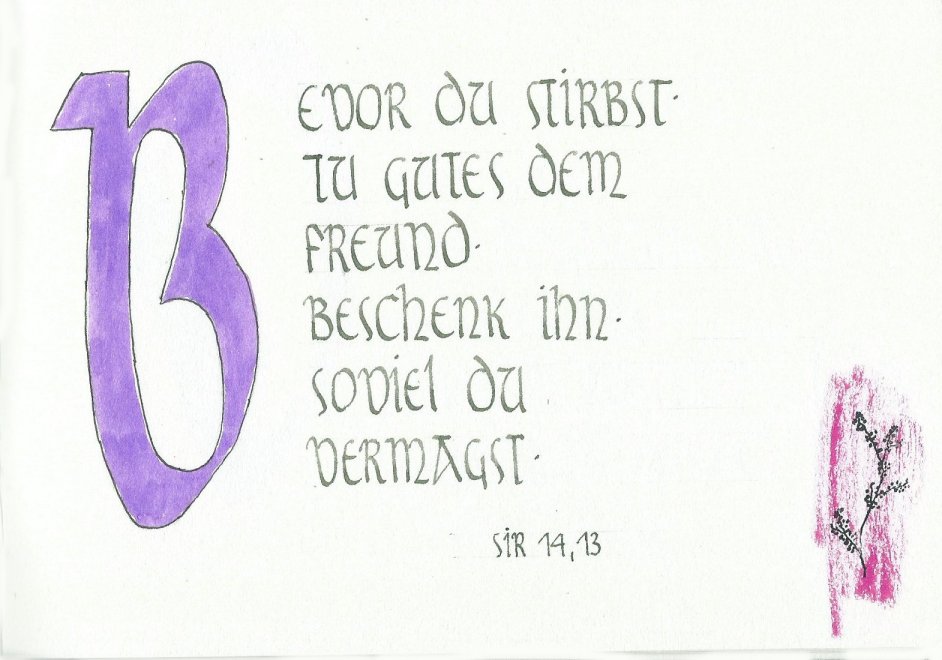 BEVOR DU STIRBST·
TU GUTES DEM
FREUND·
BESCHENK IHN·
SOVIEL DU
VERMAGST·
SIR 14,13